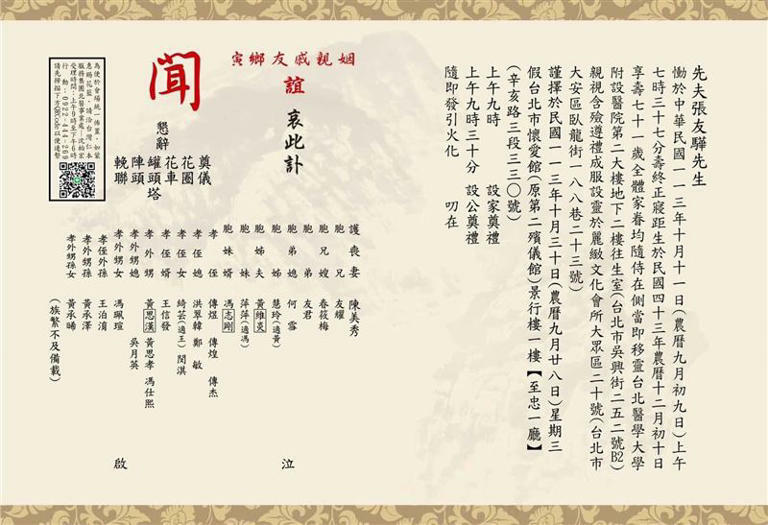 先夫張友驊先生
慟於中華民國一一三年十月十一日(農曆九月初九日)上午
七時三十七分壽終正寢距生於民國四十三年農曆十二月初十日
享壽七十一歲全體家眷均隨侍在側當即移靈台北醫學大學
附設醫院第二大樓地下二樓往生室(台北市吳興街二五二號B2)
親視含殮遵禮成服設靈於麗緻文化會所大眾區二十號(台北市
大安區臥龍街一八八巷二十三號)
謹擇於民國一一三年十月三十日(農曆九月廿八日)星期三
假台北市懷愛館(原第二殯儀館)景行樓一樓【至忠一廳】
(辛亥路三段三三〇號)
上午九時 設家奠禮
上午九時三十分 設公奠禮 叨在
隨即發引火化
姻親戚友鄉寅
誼
哀此訃
聞
懇辭
奠儀
花圈
花車
罐頭塔
陣頭
輓聯
為使於會場統一佈置,如蒙
惠賜花籃,請洽台灣仁本
服務集團北醫事業處-沈柏宏
受理時間:上午9時至下午6時
行動:0922-444-269
請先掃描下方QRCode以便連繫
護喪妻 陳美秀
胞兄 友耀
胞兄嫂 春筱梅
胞弟 友君
胞弟媳 何雪
胞姊 慧玲(適黃)
胞姊夫 黃維炎
胞妹 萍萍(適馮)
胞妹婿 馮志剛
孝侄 傳焜 傳煌 傳杰
孝侄媳 洪翠韓 鄭敏
孝侄女 綺芸(適王) 閔淇
孝侄婿 王信發
孝外甥 黃思漢 黃思孝 馮仕熙
孝外甥媳 吳月英
孝外甥女 馮珮瑄
孝侄外孫 王泊淯
孝外甥孫 黃承澤
孝外甥孫女 黃承晞
(族繁不及備載)
泣
啟